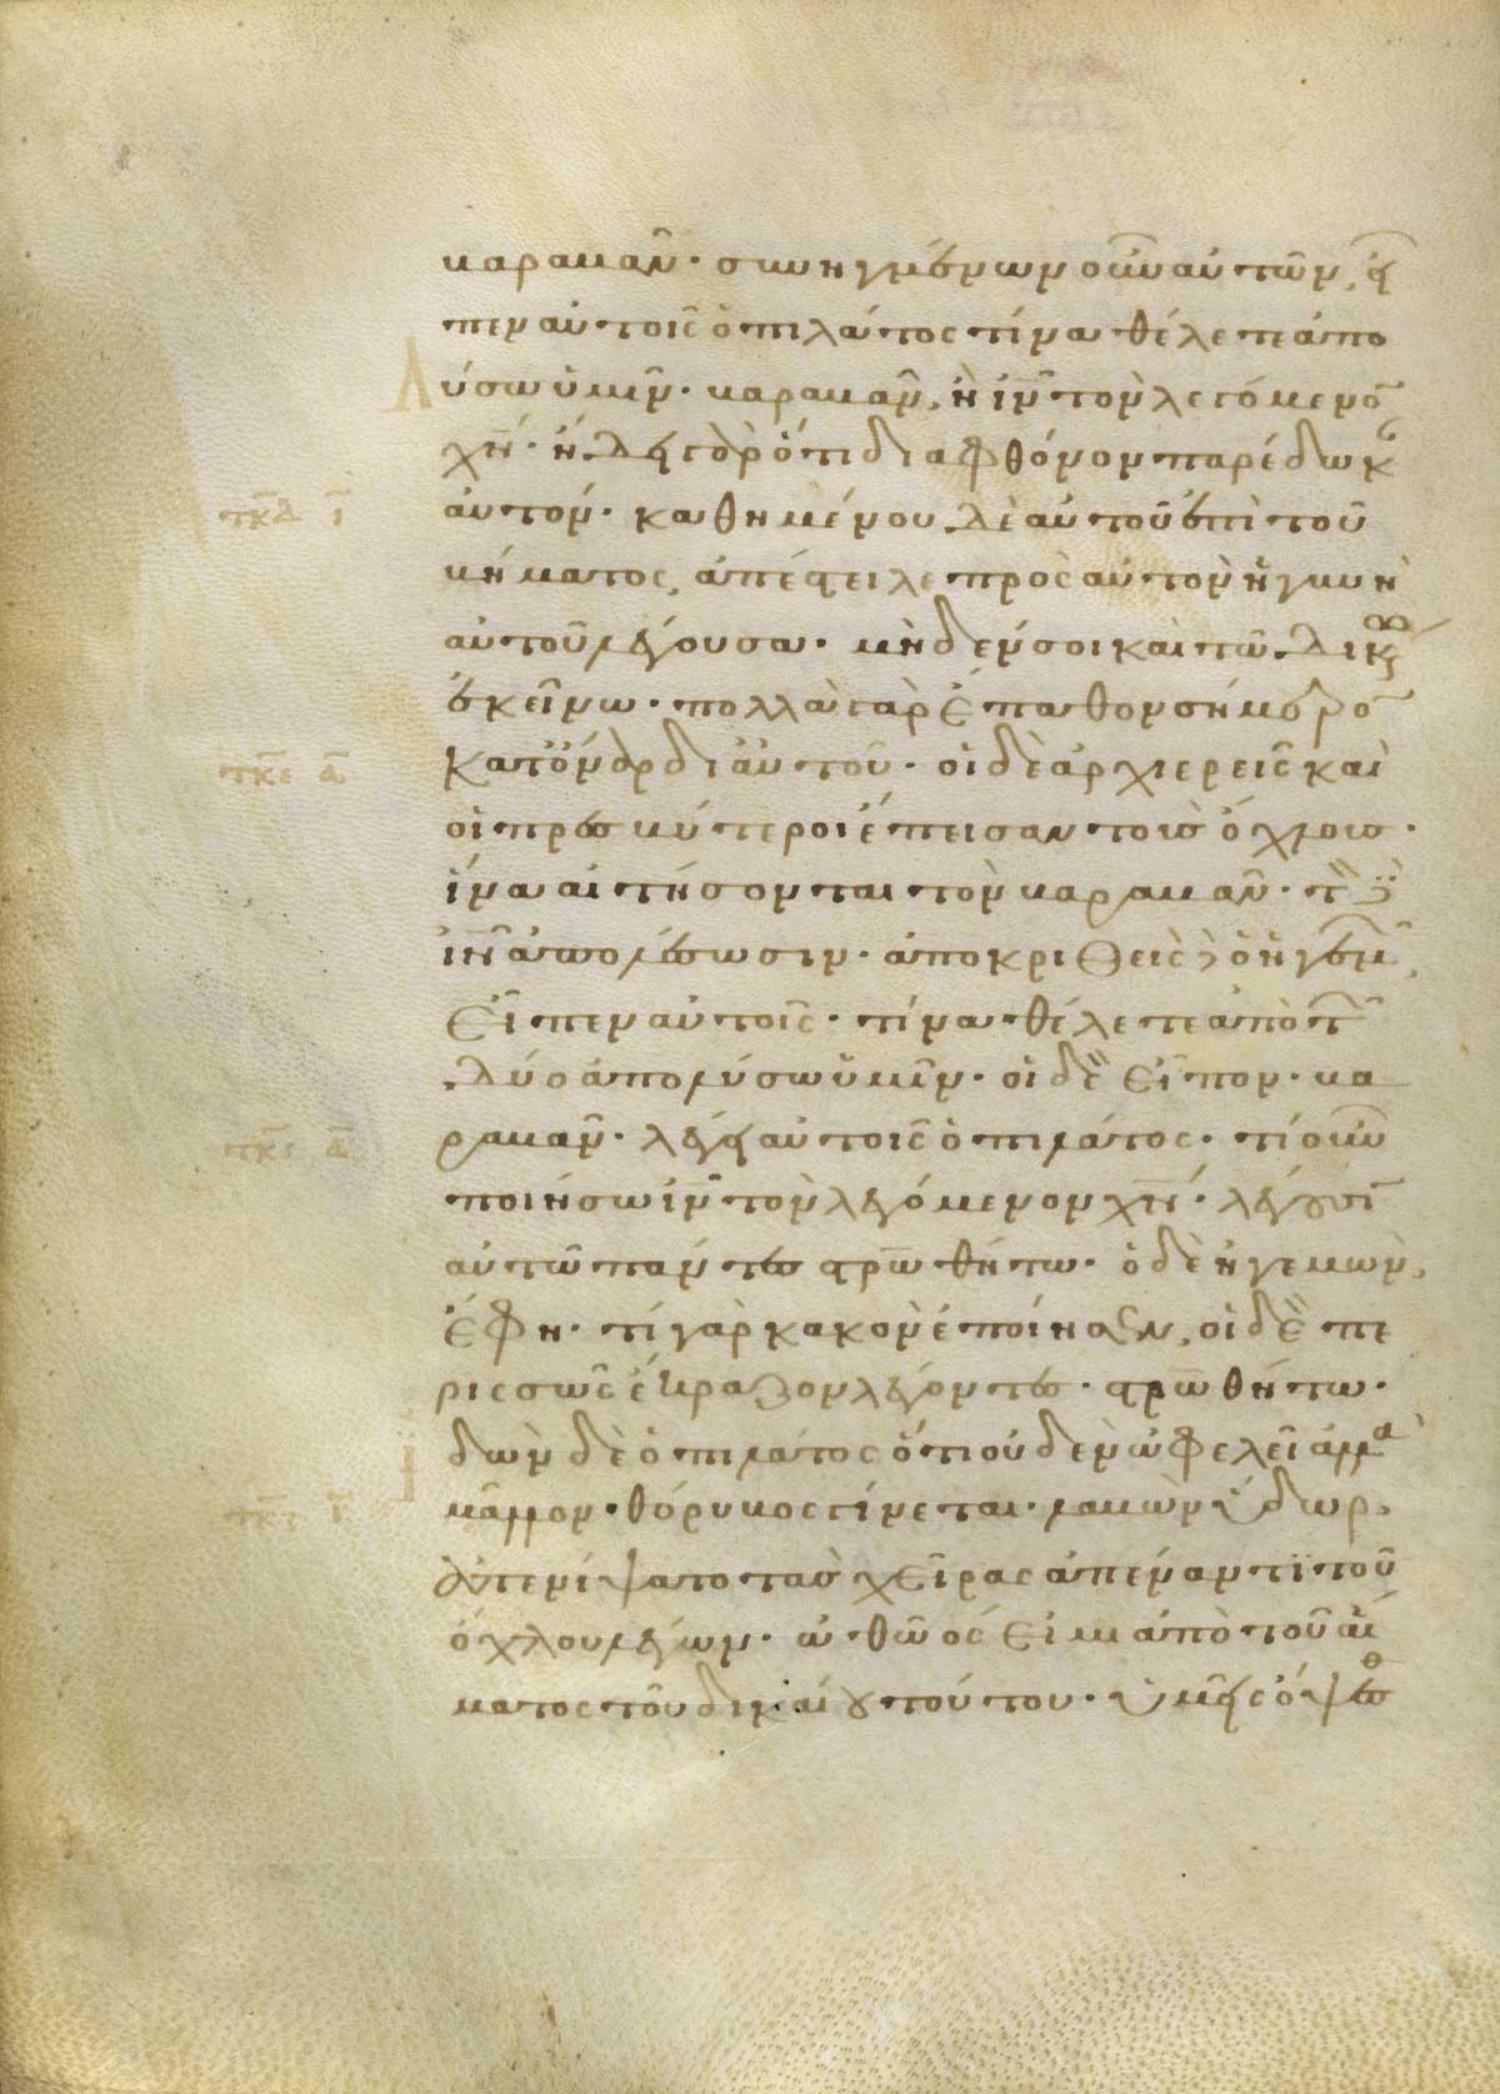 βαραββαν· συνηγμένων οὖν αὐτῶν, εἶ
πεν αὐτοῖς ὁ πιλάτος τίνα θέλετε ἀπο
λύσω ὑμῖν· βαραββᾶν, ἢ ἰν̄ τὸν λεγόμενο̄
χν̄· ἤδει γὰρ ὅτι διαφθόνον παρέδωκ
τκδ ι αὐτόν· καθημένου δὲ αὐτοῦ ἐπὶ τοῦ
βήματος, ἀπέστειλε πρὸς αὐτὸν ἡ γυνὴ
αὐτοῦ λέγουσα· μηδέν σοι καὶ τῶ δικ
ἐκείνω· πολλὰ γὰρ ἔπαθον σήμερο̄
τκε α κατ ὄναρ δι αὐτοῦ· οἱ δὲ ἀρχιερεῖς καὶ
οἱ πρεσβύτεροι ἔπεισαν τοὺς ὄχλους·
ἵνα αἰτήσονται τὸν βαραββᾶν· τ δ
ἰν̄ ἀπολέσωσιν· ἀποκριθεὶς δ ὁ ἡγεμ
εἶπεν αὐτοῖς· τίνα θέλετε ἀπὸ τ
δύο ἀπολύσω ὑμῖν· οἱ δὲ εἶπον· βα
τκς α ραββᾶν· λέγει αὐτοῖς ὁ πιλάτος· τί οὖν
ποιήσω ἰν̄ τὸν λεγόμενον χν̄· λέγουσῑ
αὐτῶ πάντες στρω̄θήτω· ὁ δὲ ἡγεμὼν,
ἔφη· τί γὰρ κακὸν ἐποίησεν, οἱ δὲ πε
ρισσῶς ἔκραζον λέγοντες· στρω̄θήτω·
ἰδὼν δὲ ὁ πιλάτος ὅτι οὐδὲν ὠφελεῖ ἀλλὰ
τκζ ι μᾶλλον θόρυβος γίνεται· λαβὼν ὕδωρ,
ἀπενίψατο τὰς χεῖρας ἀπέναντι τοῦ
ὄχλου λέγων· ἀθῶός εἰμι ἀπὸ τοῦ αἵ
ματος τοῦ δικαίου τούτου· ὑμεῖς ὄψεσθ